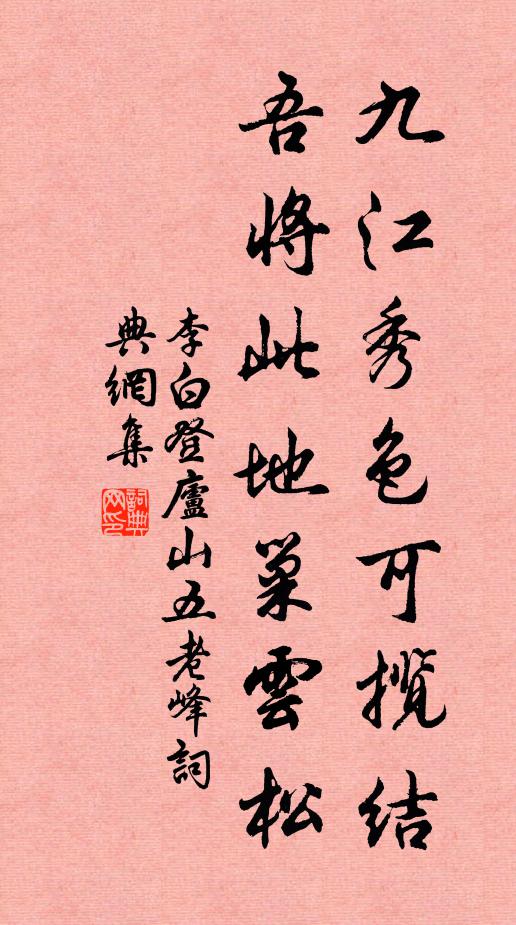 九江秀色可揽結
吾將此地巢雲松
李白登廬山五老峰詞
典網集
詞典網印